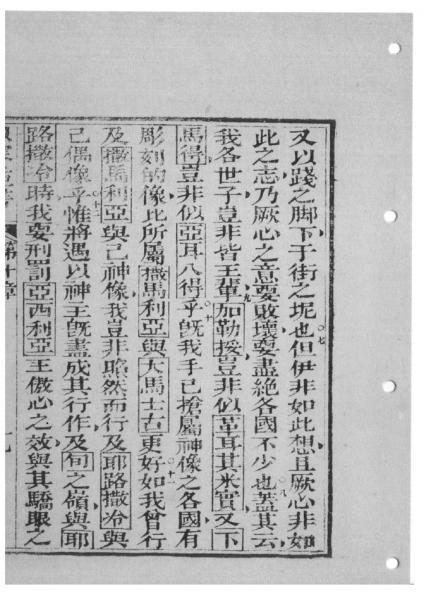 又以踐之脚下于街之坭也但伊非如此想且厥心非如
此之志乃厥心之意要敗壞要盡絶各國不少也蓋其云
我各世子豈非皆王輩加勒挼豈非似革耳其米實又下
馬得豈非似亞耳八得乎旣我手已搶屬神像之各國有
彫刻的像比所屬撒馬利亞與大馬士革更好如我曾行
及撒馬利亞與己神像我豈非照然而行及耶路撒冷與
己偶像乎惟將遇以神王旣盡成其行作及旬之嶺與耶
路撒冷時我要刑罰亞西利亞王傲心之效與其驕眼之
第十章